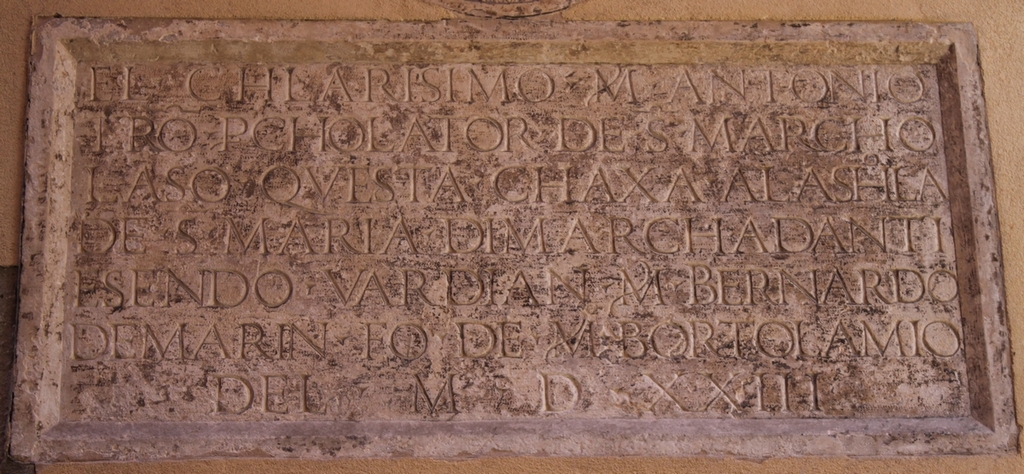 EL CHLARISIMO M ANTONIO
TRÕ PCHOLATOR DE S MARCHO
LASO QVESTA CHAXA ALASHLA
DE S MARIA DIMARCHADANTI
ESENDO VARDIAN M BERNARDO
DEMARIN FO DE M BORTOLAMIO
DEL M D XXIII